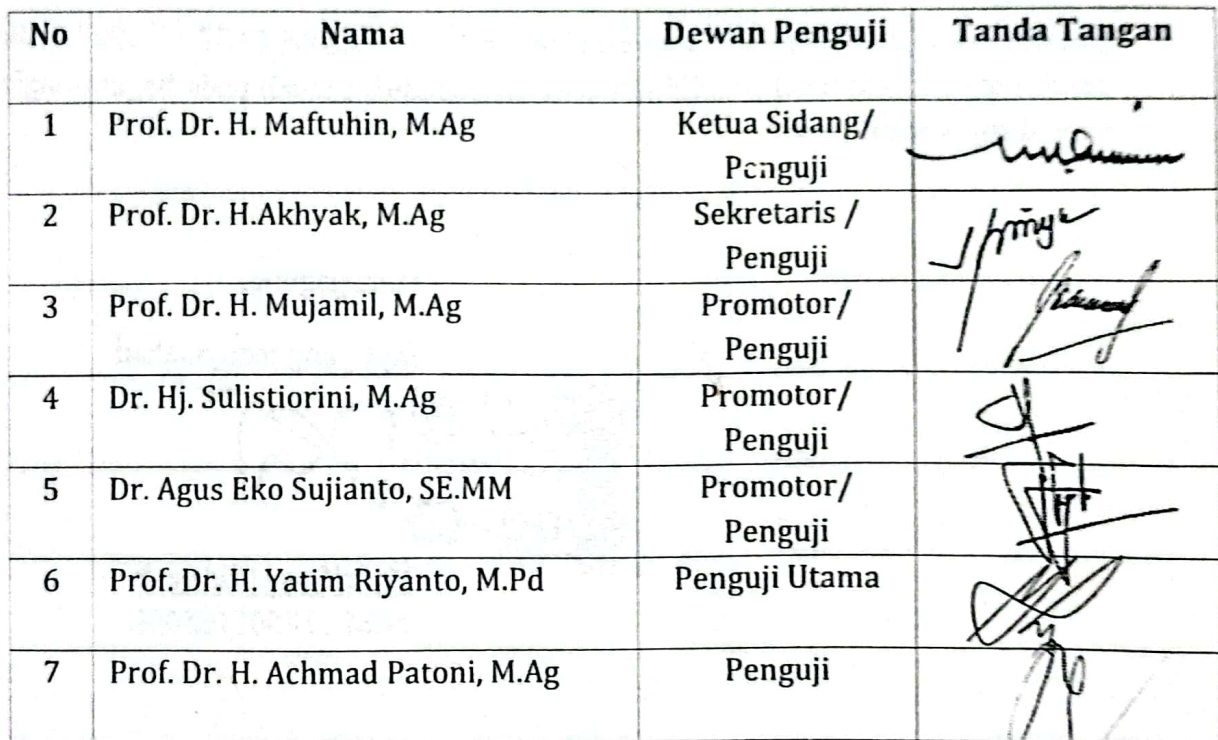 No Nama Dewan Penguji Tanda Tangan
1 Prof. Dr. H. Maftuhin, M.Ag Ketua Sidang/
Penguji
2 Prof. Dr. H.Akhyak, M.Ag Sekretaris /
Penguji
3 Prof. Dr. H. Mujamil, M.Ag Promotor/
Penguji
4 Dr. Hj. Sulistiorini, M.Ag Promotor/
Penguji
5 Dr. Agus Eko Sujianto, SE.MM Promotor/
Penguji
6 Prof. Dr. H. Yatim Riyanto, M.Pd Penguji Utama
7 Prof. Dr. H. Achmad Patoni, M.Ag Penguji